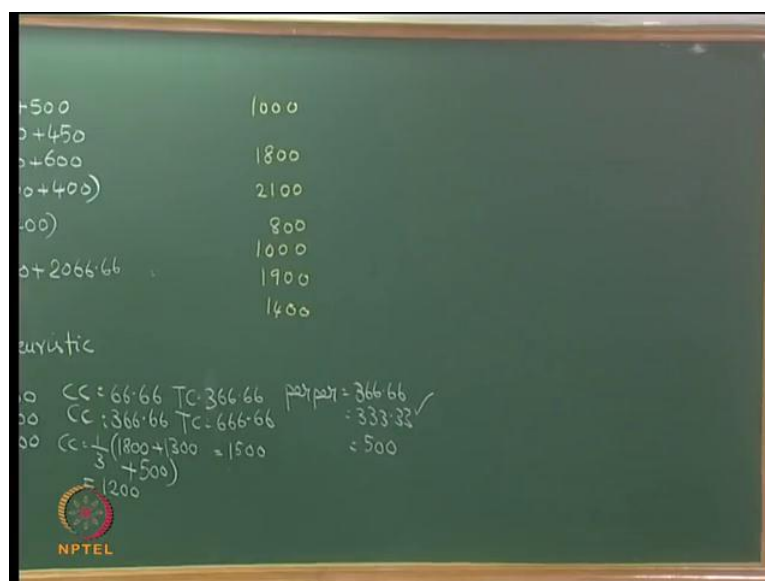 +500 1000
0+450
0+600 1800
00+400) 2100
400) 800
1000
0+2066.66 1900
1400
euristic
00 CC = 66.66 TC = 366.66 per per = 366.66 ✓
00 CC = 366.66 TC = 666.66 = 333.33
00 CC = 1/3 (1800+1300 = 1500 = 500
+500)
= 1200
NPTEL